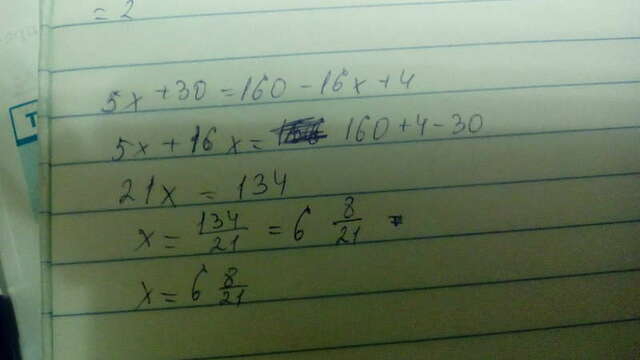 = 2
5x + 30 = 160 - 16x + 4
5x + 16x = 160 + 4 - 30
21x = 134
x = 134/21 = 6 8/21 -
x = 6 8/21
T